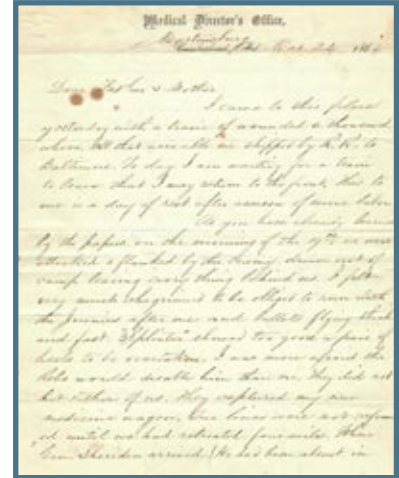 Medical Director's Office,
Martinsburg Oct 24 186
Dear Father & Mother
I came to this place
yesterday with a train of wounded a thousand
whom all that were able we shipped by R. R. to
Baltimore. To day I am waiting for a train
to leave that I may return to the front, this to
me is a day of rest after season of labor
As you have already learned
by the papers, on the morning of the 19th we were
attacked & flanked by the Enemy, driven out of
camp leaving every thing behind us. I felt
very much chagrined to be obliged to run with
the after me and bullets flying thick
and fast showed too good a pair of
heels to be overtaken. I was more afraid the
Rebs would him than me, they did not
hit either of us. they captured my
medicine wagon, Our lines were not reform
ed until we had retreated four miles. When
Gen. Sheridan arrived (He had been absent in